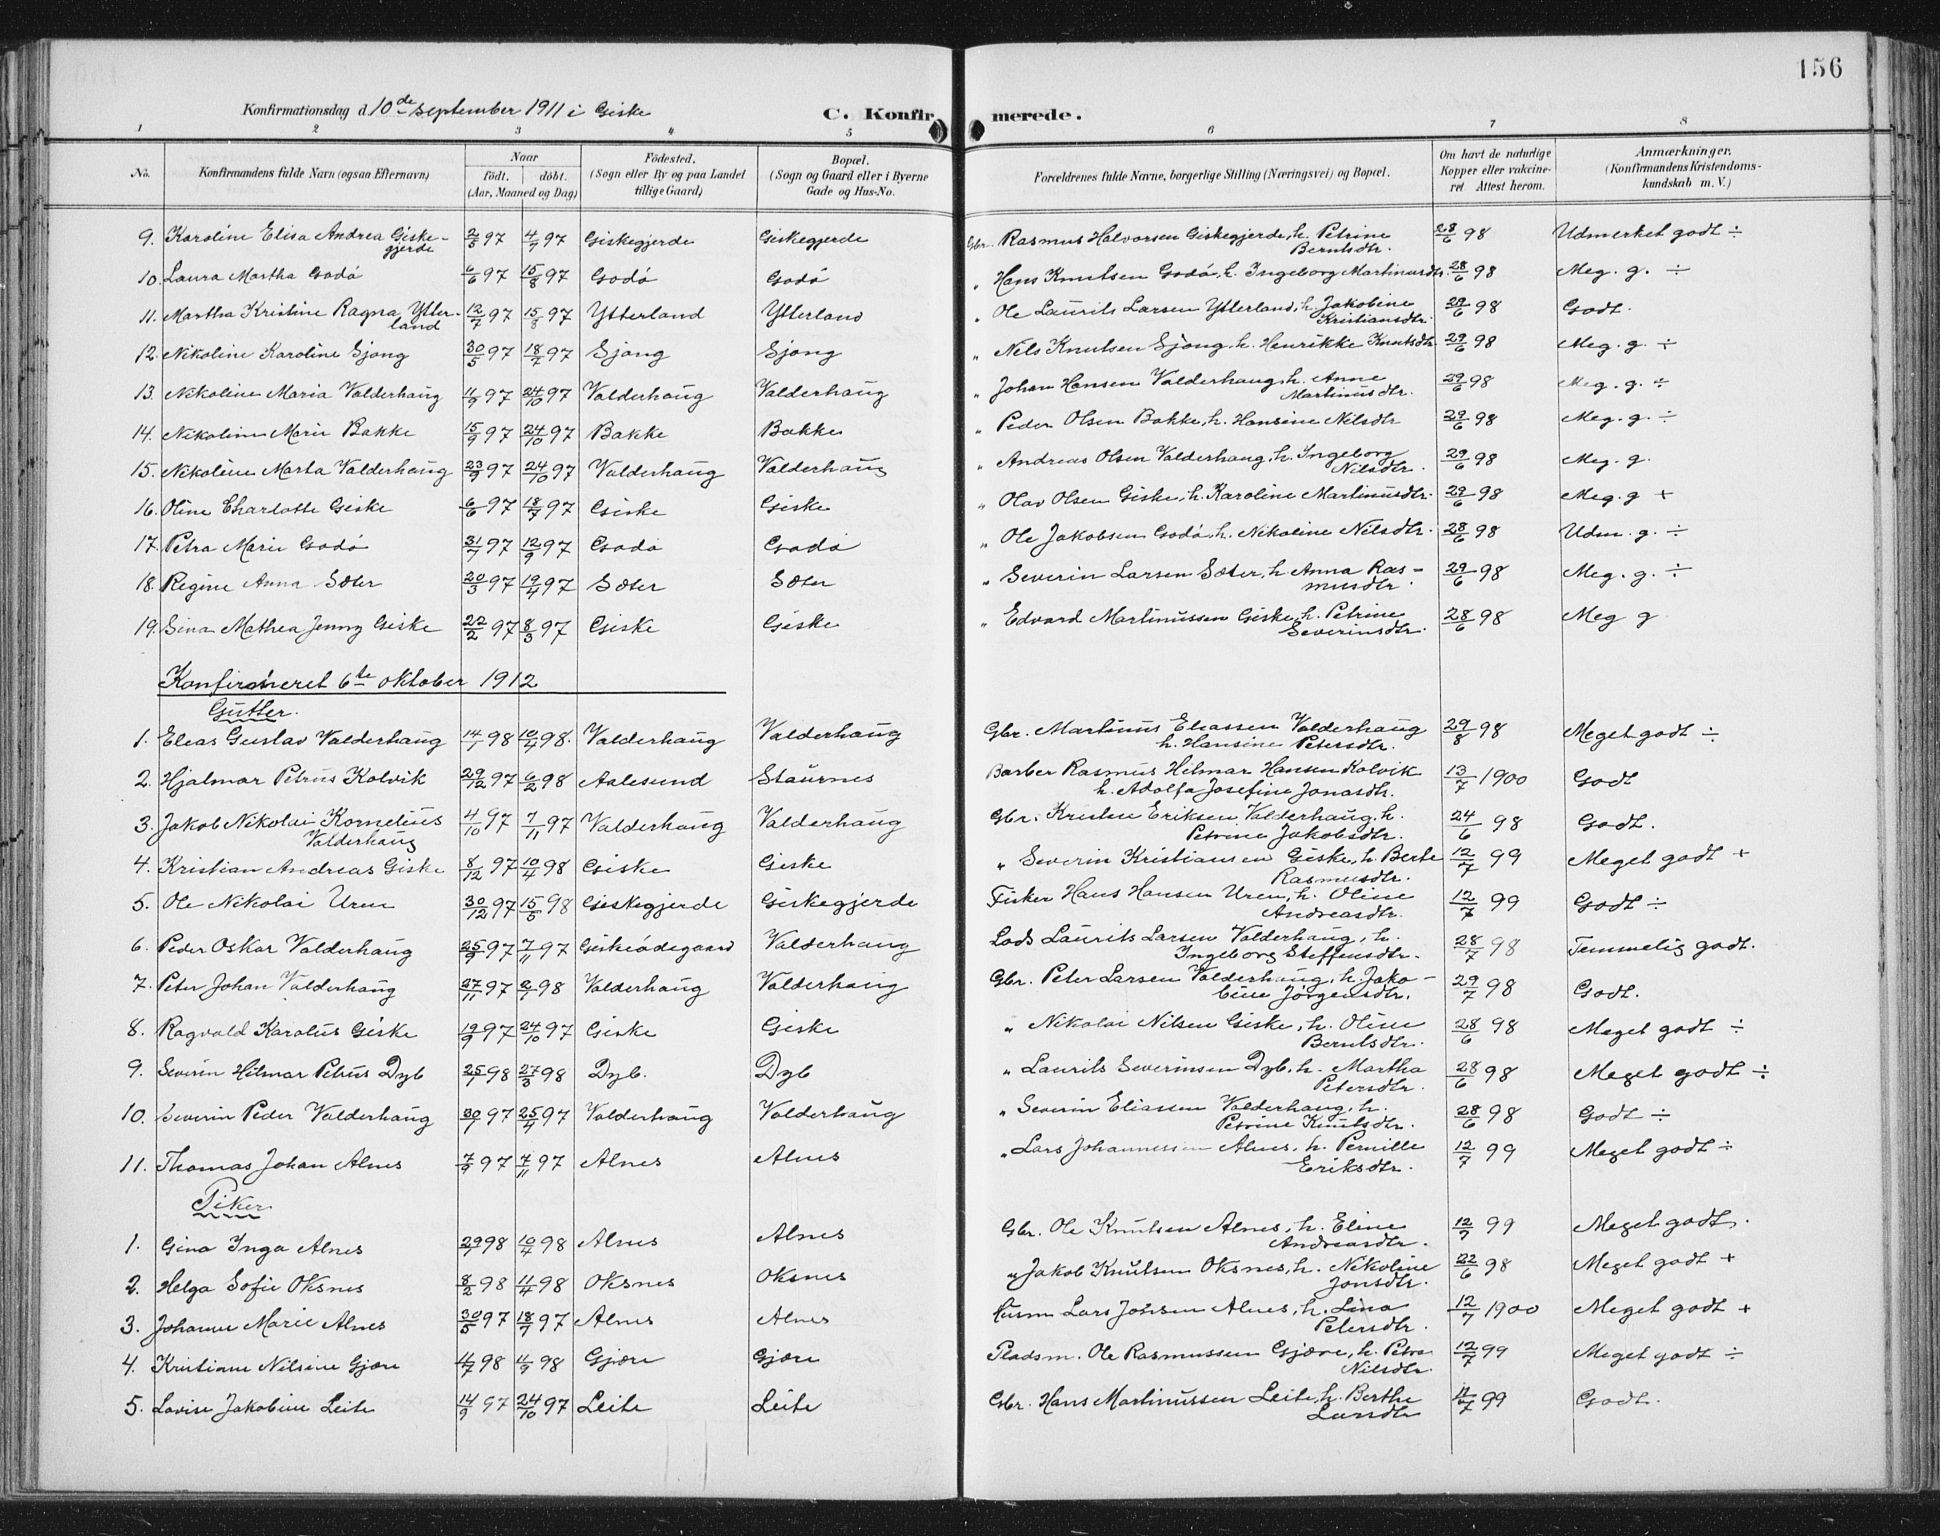 156
Konfirmationsdag d. 10de september 1911 i Giske C. Konfirmerede.
1 2 3 4 5 6 7 8
No. Konfirmandens fulde Navn (ogsaa Efternavn) Naar født. døbt. (Aar, Maaned og Dag) Fødested. (Sogn eller By og paa Landet tillige Gaard) Bopæl. (Sogn og Gaard eller i Byerne Gade og Hus-No. Forældrenes fulde Navne, borgerlige Stilling (Næringsvei) og Bopæl. Om havt de naturlige Kopper eller vakcineret. Attest herom. Anmærkninger. (Konfirmandens Kristendomskundskab m. V.)
9. Karoline Elisa Andrea Giskegjerde 2/5 97 4/7 97 Giskegjerde Giskegjerde Gbr. Rasmus Halvorsen Giskegjerde, h. Petrine Berntsdtr. 28/6 98 Udmerket godt ÷
10. Laura Martha Godø 6/6 97 15/8 97 Godø Godø " Hans Knutsen Godø, h. Ingeborg Martinusdtr. 28/6 98 Meg. g. ÷
11. Martha Kristine Ragna Ytterland 12/7 97 15/8 97 Ytterland Ytterland " Ole Laurits Larsen Ytterland, h. Jakobine Kristiansdtr. 29/6 98 Godt.
12. Nikoline Karoline Sjong 30/5 97 18/7 97 Sjong Sjong " Nels Knutsen Sjong, h. Henrikke Knutsdtr. 29/6 98 Meg. g. ÷
13. Nikoline Maria Valderhaug 11/9 97 24/10 97 Valderhaug Valderhaug " Johan Hansen Valderhaug, h. Anne Martinusdtr. 29/6 98 Meg. g. ÷
14. Nikoline Marie Bakke 15/9 97 24/10 97 Bakke Bakke " Peder Olsen Bakke, h. Hansine Nilsdtr 29/6 98 Meg. g. ÷
15. Nikoline Marta Valderhaug 23/9 97 24/10 97 Valderhaug Valderhaug " Andreas Olsen Valderhaug, h. Ingeborg Nilsdtr. 29/6 98 Meg. g.
16. Oline Charlotte Giske 6/6 97 18/7 97 Giske Giske " Olav Olsen Giske, h. Karoline Martinusdtr. 29/6 98 Meg. g +
17. Petra Marie Godø 31/7 97 12/9 97 Godø Godø " Ole Jakobsen Godø, h. Nikoline Nilsdtr. 28/6 98 Udm. g. ÷
18. Regine Anna Sæter 20/3 97 19/4 97 Sæter Sæter " Severin Larsen Sæter, h. Anna Rasmusdtr. 29/6 98 Meg. g. ÷
19. Sina Mathea Jenny Giske 22/2 97 8/3 97 Giske Giske " Edvard Martinussen Giske, h. Petrine Severinsdtr. 28/6 98 Meg g
Konfirmeret 6te oktober 1912
Gutter.
1. Elias Gustav Valderhaug 14/1 98 10/4 98. Valderhaug Valderhaug Gbr. Martinus Eliassen Valderhaug h. Hansine Petersdtr. 29/8 98 Meget godt ÷
2. Hjalmar Petrus Kolvik 29/12 97 6/2 98 Aalesund Staurnes Barber Rasmus Hilmar Hansen Kolvik h. Adolfa Josefine Jonasdtr. 13/7 1900 Godt
3. Jakob Nikolai Kornelius Valderhaug 4/10 97 7/11 97 Valderhaug Valderhaug Gbr. Kristen Eriksen Valderhaug, h. Petrine Jakobsdtr. 24/6 98 Godt.
4. Kristian Andreas Giske 8/12 97 10/4 98 Giske Giske " Severin Kristiansen Giske, h. Berte Rasmusdtr. 12/7 99 Meget godt +
5. Ole Nikolai Uren 30/12 97 15/5 98 Giskegjerde Giskegjerde Fisker Hans Hansen Uren, h. Oline Andreasdtr. 12/7 99 Godt ÷
6. Peder Oskar Valderhaug 25/9 97 7/11 97 Giskeødegaard Valderhaug Lods Laurits Larsen Valderhaug, h. Ingeborg Steffensdtr. 28/7 98 Temmelig godt.
7. Peter Johan Valderhaug 27/11 97 2/1 98 Valderhaug Valderhaug Gbr. Peter Larsen Valderhaug, h. Jakobine Jørgensdtr. 29/7 98 Godt.
8. Ragvald Karolus Giske 19/9 97 24/10 97 Giske Giske " Nikolai Nilsen Giske, h. Oline Berntsdtr. 28/6 98 Meget godt ÷
9. Severin Hilmar Petrus Dyb 25/1 98 27/3 98 Dyb. Dyb " Laurits Severinsen Dyb, h. Martha Petersdtr. 28/6 98 Meget godt ÷
10. Severin Peder Valderhaug 30/1 97 25/4 97 Valderhaug Valderhaug " Severin Eliassen Valderhaug, h. Petrine Knutsdtr. 28/6 98 Godt ÷
11. Thomas Johan Alnes 7/9 97 7/11 97 Alnes Alnes " Lars Johannessen Alnes, h. Pernille Eriksdtr. 12/7 99 Meget godt ÷
Piker.
1. Gina Inga Alnes 29/1 98 10/4 98 Alnes Alnes Gbr. Ole Knutsen Alnes, h. Eline Andreasdtr. 12/7 99 Meget godt.
2. Helga Sofie Oksnes 8/2 98 11/4 98 Oksnes Oksnes " Jakob Knutsen Oksnes, h. Nikoline Jonsdtr. 22/6 98 Meget godt +
3. Johanne Marie Alnes 30/5 97 18/7 97 Alnes Alnes Husm Lars Johsen Alnes, h. Lina Petersdtr. 12/7 1900 Meget godt +
4. Kristiane Nilsine Gjøre 98 98 Gjøre Gjøre Pladsm. Ole Rasmussen Gjøre, h. Petra Nilsdtr. 12/7 99 Meget godt ÷
5. Lovise Jakobine Leite 14/9 97 24/10 97 Leite Leite Gbr. Hans Martinussen Leite, h. Berthe Larsdtr 99 Godt.